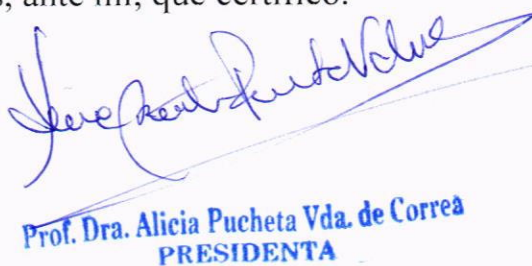 s, ante mí, que certifico.
Prof. Dra. Alicia Pucheta Vda. de Correa
PRESIDENTA